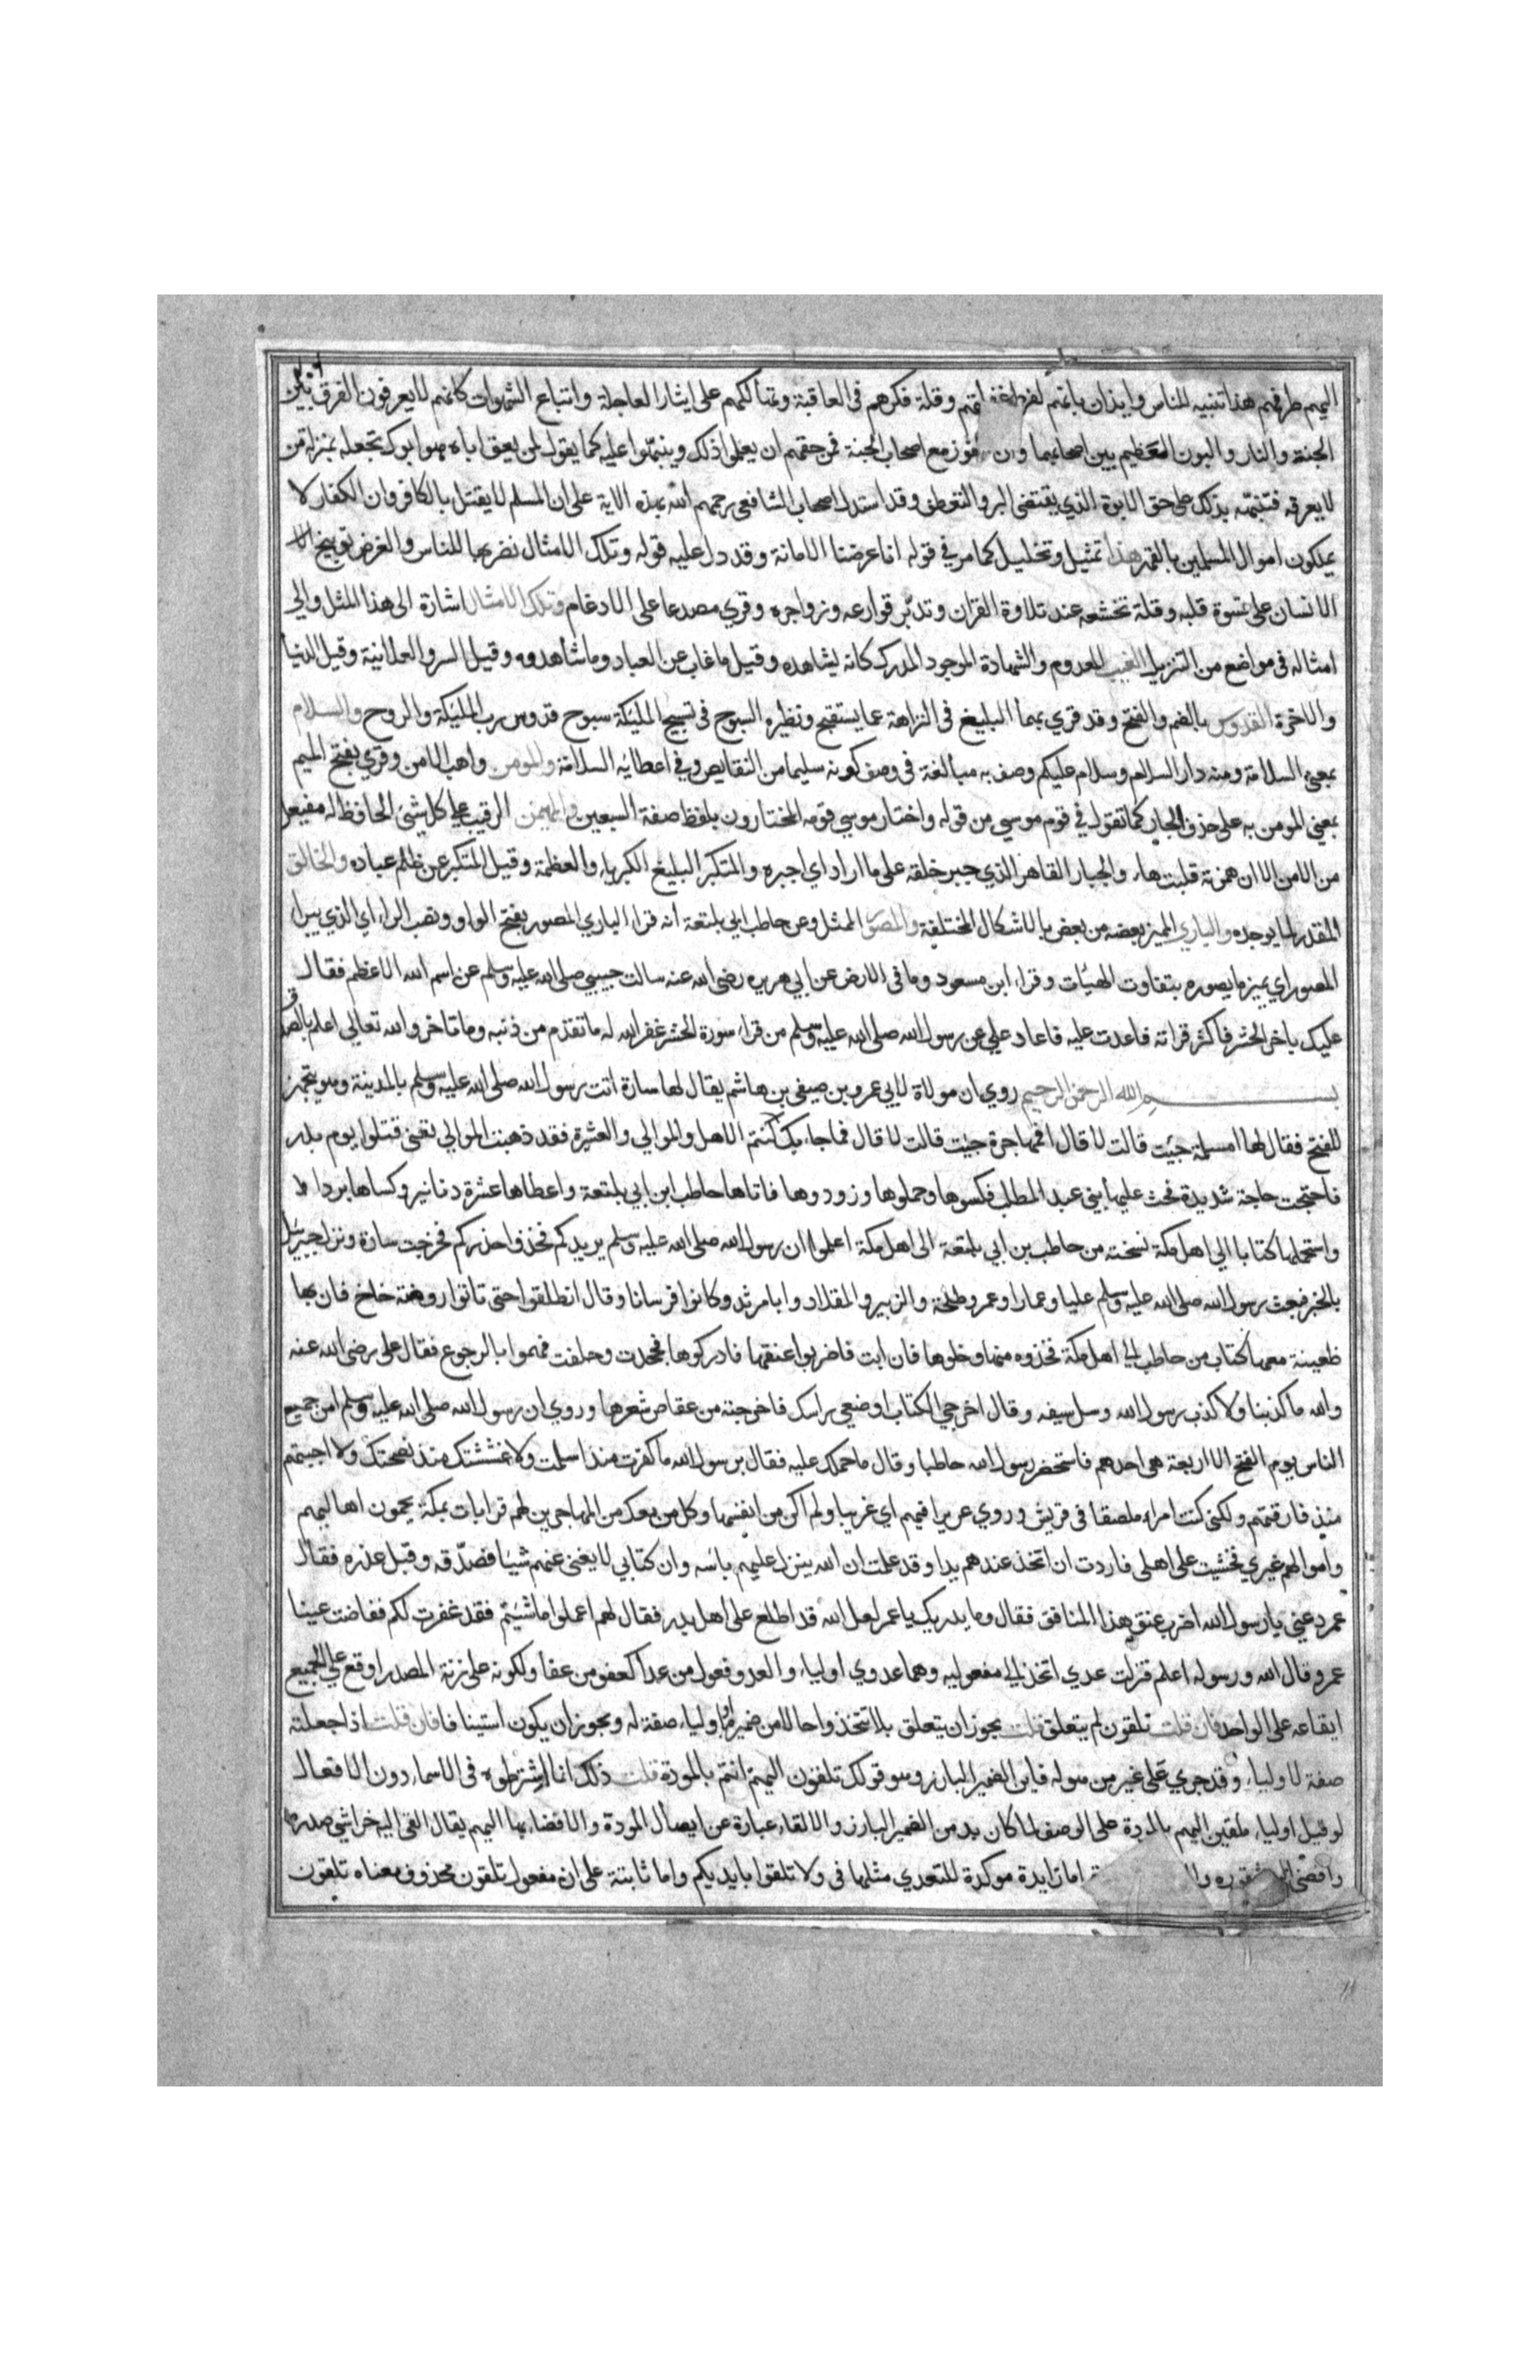 اليهم طرفهم هذا تنبيه للناس وايذان بانهم لفرط غفلتهم وقلة فكرهم في العاقبة وتهالكهم على ايثار العاجلة واتباع الشهوات كانهم لا يعرفون الفرق بين
الجنة والنار والبون العظيم بين اصحابهما وان الفوز مع اصحاب الجنة فمن حقهم ان يعلموا ذلك وينبهوا عليه كما يقول لمن يعق اباه هو ابوك تجعله بمنزلة من
لا يعرفه فتنبهه بذلك على حق الابوة الذي يقتضي البر والتعطف وقد استدل اصحاب الشافعي رحمهم الله بهذه الاية على ان المسلم لا يقتل بالكافر وان الكفار لا
يملكون اموال المسلمين بالقهر هذا تمثيل وتخليل كما مر في قوله انا عرضنا الامانة وقد دل عليه قوله وتلك الامثال نضربها للناس والغرض توبيخ
الانسان على قسوة قلبه وقلة تخشعه عند تلاوة القران وتدبر قوارعه وزواجره وقري مصدعا على الادغام وتلك الامثال اشارة الى هذا المثل والي
امثاله في مواضع من التنزيل الغيب المعدوم والشهادة الموجود المدرك كانه يشاهده وقيل ما غاب عن العباد وما شاهدوه وقيل السر والعلانية وقيل الدنيا
والاخرة القدوس بالضم والفتح وقد قري بهما البليغ في النزاهة عما يستقبح ونظيره السبوح في تسبيح المليكة سبوح قدوس رب المليكة والروح والسلام
بمعني السلامة ومنه دار السلام وسلام عليكم وصف به مبالغة في وصف كونه سليما من النقايص وفي اعطايه السلامة والمومن واهب الامن وقري بفتح الميم
بمعني المومن به على حذف الجار كما تقول في قوم موسي من قوله واختار موسي قومه المختارون بلفظ صفة السبعين والمهيمن الرقيب على كل شيء الحافظ له مفيعل
من الامن الا ان همزته قلبت هاء والجبار القاهر الذي جبر خلقه على ما اراد اي اجبره والمتكبر البليغ الكبرياء والعظمة وقيل المتكبر عن ظلم عباده والخالق
المقدر لما يوجده والباري المميز بعضه من بعض بالاشكال المختلفة والمصور الممثل وعن حاطب ابي بلتعة انه قرا الباري المصور بفتح الواو ونصب الراء اي الذي يبرا
المصور اي يميز ما يصوره بتفاوت الهيئات وقراء ابن مسعود وما في الارض عن ابي هريره رضي الله عنه سالت حبيبي صلى الله عليه وسلم عن اسم الله الاعظم فقال
عليك باخر الحشر فاكثر قراته فاعدت عليه فاعاد علي عن رسول الله صلى الله عليه وسلم من قراء سورة الحشر غفر الله له ما تقدم من ذنبه وما تاخر والله تعالي اعلم بالصدق
بسم الله الرحمن الرحيم روي ان مولاة لابي عمرو بن صيفي بن هاشم يقال لها سارة اتت رسول الله صلى الله عليه وسلم بالمدينة وهو يتجهز
للفتح فقال لها امسلمة جئت قالت لا قال افمهاجرة جئت قالت لا قال فما جاء بك كنتم الاهل والموالي والعشيرة فقد ذهبت الموالي تعني قتلوا يوم بدر
فاحتجت حاجة شديدة فحث عليها بني عبد المطلب فكسوها وحملوها وزودوها فاتاها حاطب ابن ابي بلتعة واعطاها عشرة دنانير وكساها بردا
واستحملها كتابا الي اهل مكة نسخته من حاطب بن ابي بلتعة الى اهل مكة اعلموا ان رسول الله صلى الله عليه وسلم يريدكم فخذوا حذركم فخرجت سارة ونزل جبريل
بالخبر فبعث رسول الله صلى الله عليه وسلم عليا وعمارا وعمر وطلحة والزبير والمقداد وابا مرثد وكانوا فرسانا وقال انطلقوا حتى تاتوا روضة خاخ فان بها
ظعينة معها كتاب من حاطب الى اهل مكة فخذوه منها وخلوها فان ابت فاضربوا عنقها فادركوها فجحدت وحلفت فهموا بالرجوع فقال على رضي الله عنه
والله ما كذبنا ولا كذب رسول الله وسل سيفه وقال اخرجي الكتاب او ضعي راسك فاخرجته من عقاص شعرها وروي ان رسول الله صلى الله عليه وسلم امن جميع
الناس يوم الفتح الا اربعة هي احدهم فاستحضر رسول الله حاطبا وقال ما حملك عليه فقال يرسول الله ما كفرت منذ اسلمت ولا غششتك منذ نصحتك ولا احببتهم
منذ فارقتهم ولكني كنت امراء ملصقا في قريش وروي عريرا فيهم اي غريبا ولم اكن من انفسها وكل من معك من المهاجرين لهم قرابات بمكة يحمون اهاليهم
واموالهم غيري فخشيت على اهلى فاردت ان اتخذ عندهم يدا وقد علمت ان الله ينزل عليهم باسه وان كتابي لا يغني عنهم شيا فصدقه وقبل عذره فقال
عمر دعني يا رسول الله اضرب عنق هذا المنافق فقال وما يدريك يا عمر لعل الله قد اطلع على اهل بدر فقال لهم اعملوا ما شئتم فقد غفرت لكم ففاضت عينا
عمر وقال الله ورسوله اعلم فنزلت عدي اتخذ الى مفعوليه وهما عدوي اولياء والعدو فعول من عدا كعفو من عفا ولكونه على زنة المصدر اوقع على الجميع
ايقاعه على الواحد فان قلت تلقون لم يتعلق قلت يجوز ان يتعلق بلا تتخذوا حالا من ضميره او باولياء صفة له ويجوز ان يكون استينافا فان قلت اذا جعلته
صفة لاولياء وقد جري على غير من هو له فاين الضمير البارز وهو قولك تلقون اليهم انتم بالمودة قلت ذلك انما اشترطوه في الاسماء دون الافعال
لو قيل اولياء ملقين اليهم بالمودة على الوصف لما كان بد من الضمير البارز والالقاء عبارة عن ايصال المودة والافضاء بها اليهم يقال القي اليه خراشي صدره
وافضى اليه بقشوره والباء اما زايدة موكدة للتعدي مثلها في ولا تلقوا بايديكم واما ثابتة على ان مفعول تلقون محذوف معناه تلقون